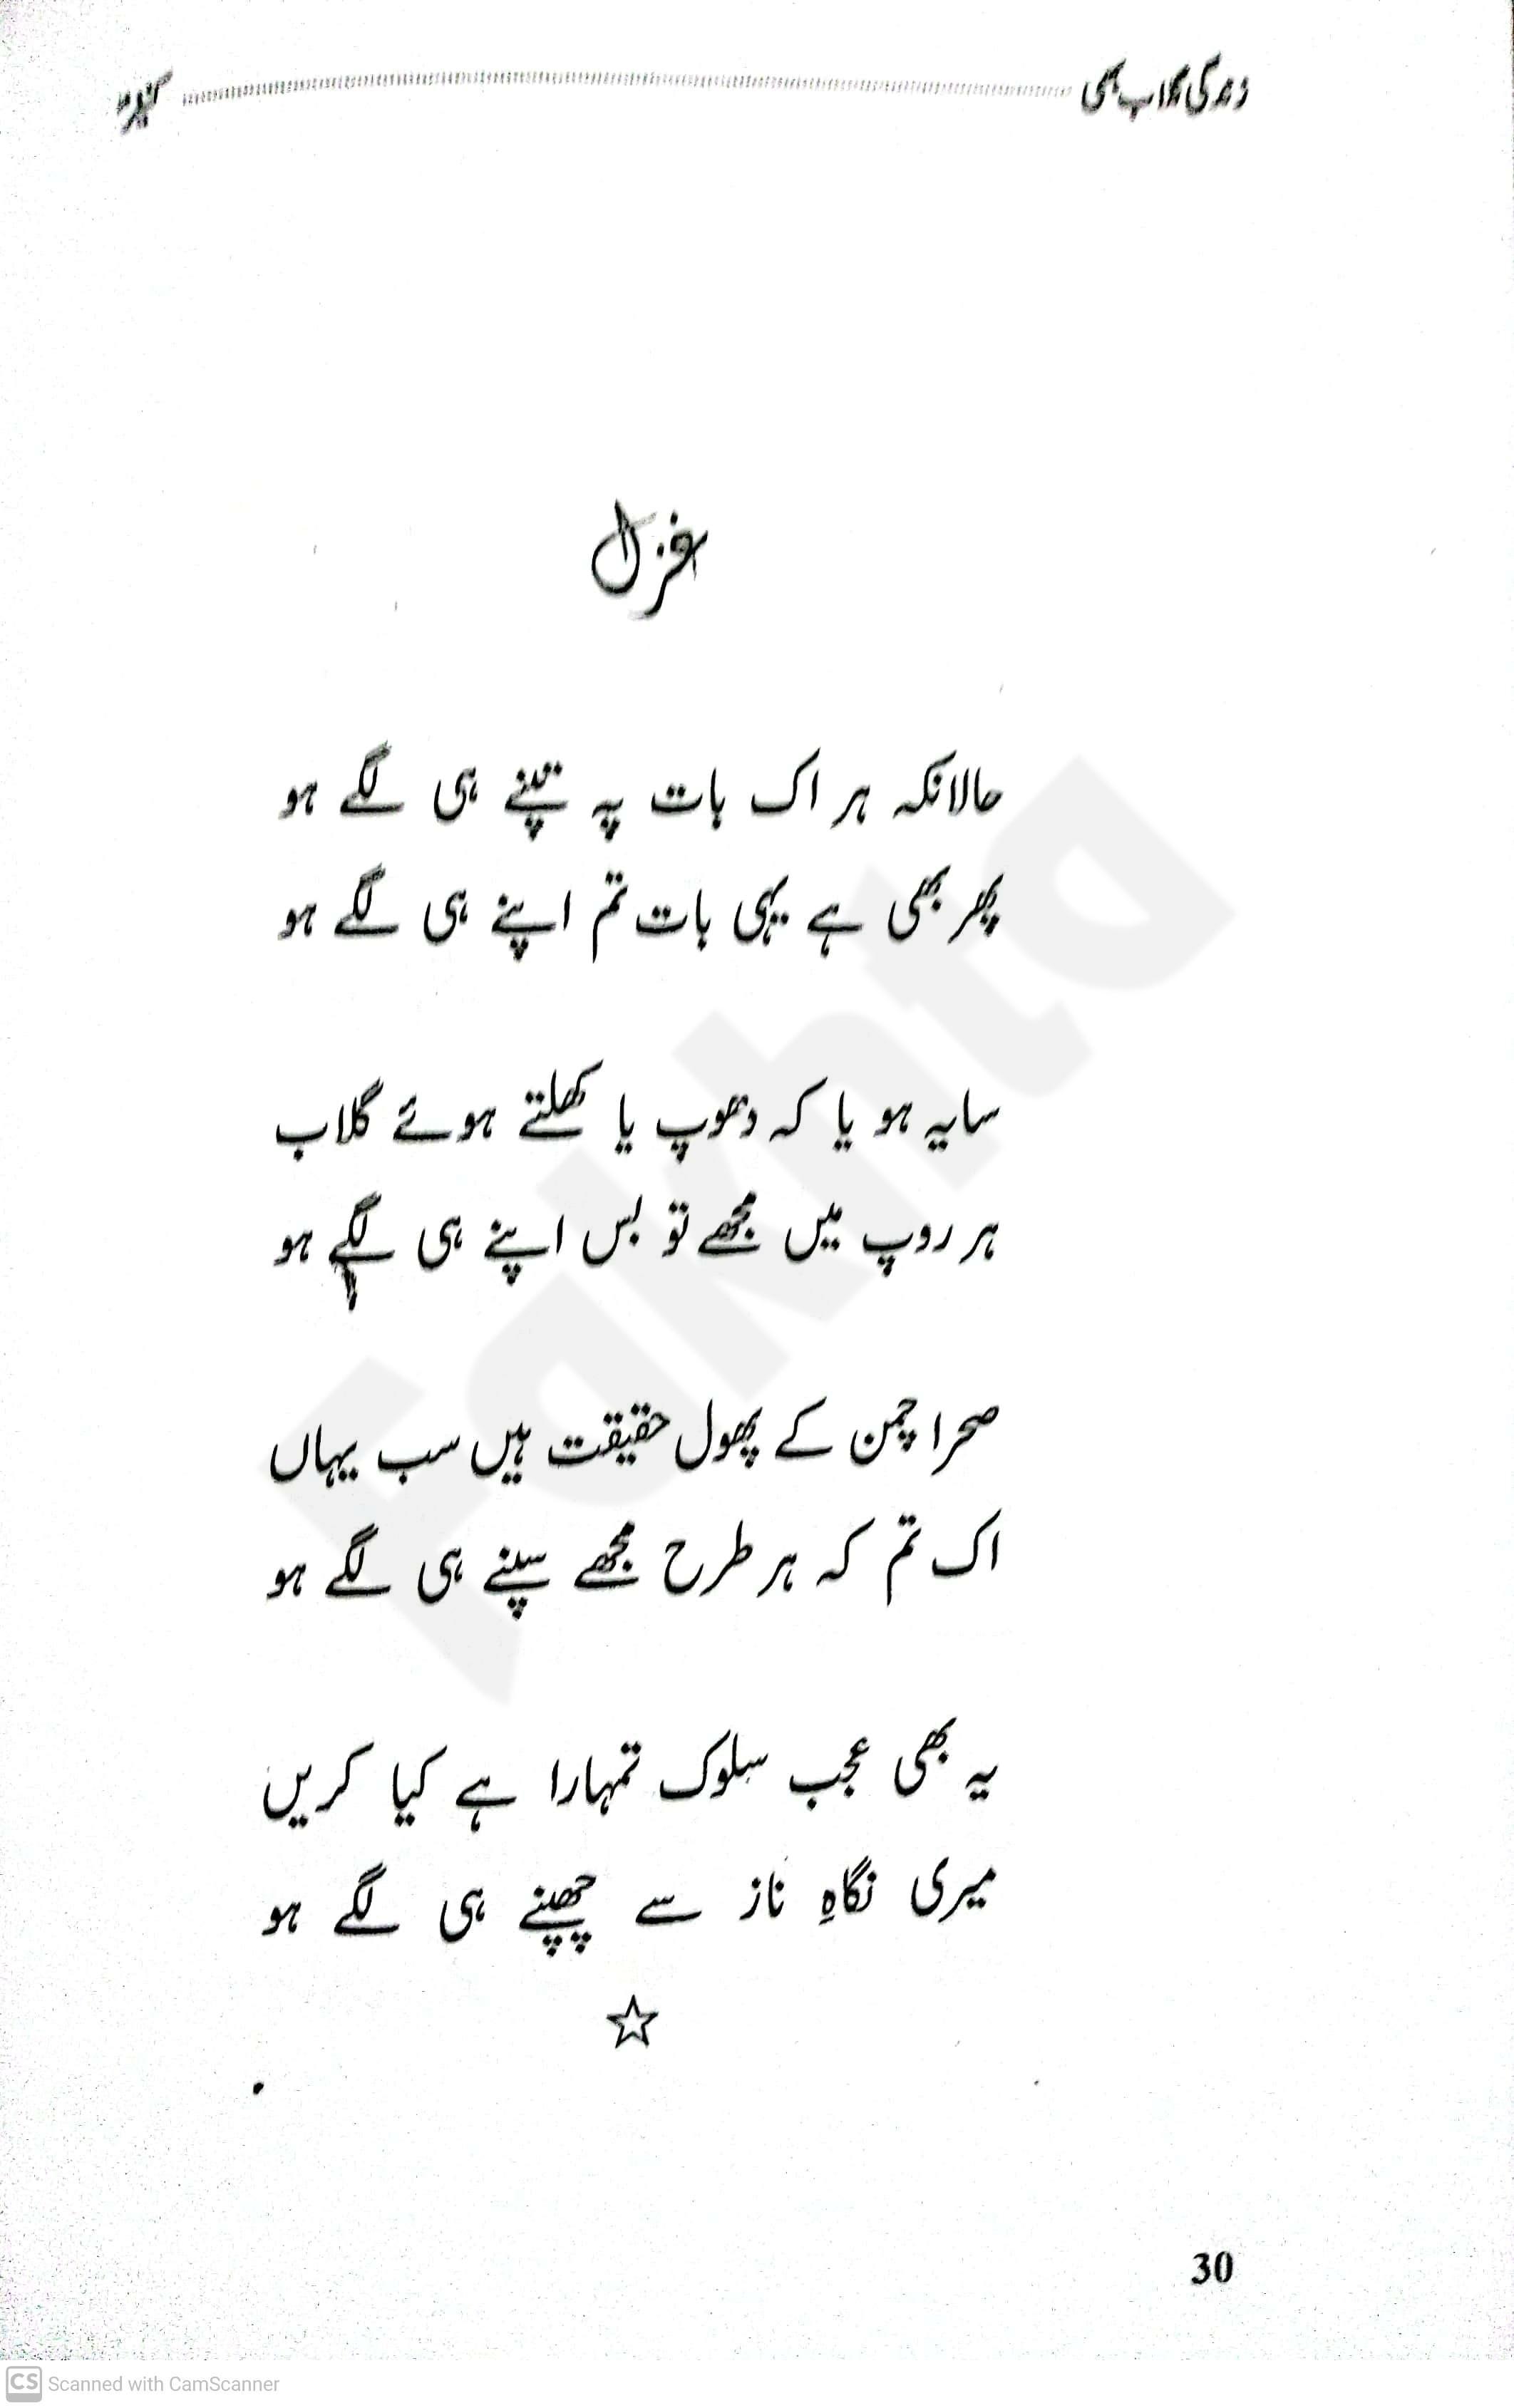 زندگی گلاب سی
غزل
حالانکہ ہر اک بات پہ تپنے ہی لگے ہو
پھر بھی ہے یہی بات تم اپنے ہی لگے ہو
سایہ ہو یا کہ دھوپ یا کھلتے ہوئے گلاب
ہر روپ میں مجھے تو بس اپنے ہی لگے ہو
صحرا چمن کے پھول حقیقت ہیں سب یہاں
اک تم کہ ہر طرح مجھے سپنے ہی لگے ہو
یہ بھی عجب سلوک تمہارا ہے کیا کریں
میری نگاہِ ناز سے چھپنے ہی لگے ہو
30
Fakhta
CS Scanned with CamScanner